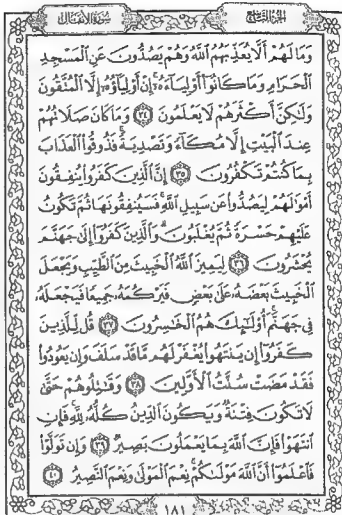 الجزء التاسع سورة الأنفال
وَمَا لَهُمْ أَلَّا يُعَذِّبَهُمُ ٱللَّهُ وَهُمْ يَصُدُّونَ عَنِ ٱلْمَسْجِدِ
ٱلْحَرَامِ وَمَا كَانُوٓا۟ أَوْلِيَآءَهُۥٓ إِنْ أَوْلِيَآؤُهُۥٓ إِلَّا ٱلْمُتَّقُونَ
وَلَٰكِنَّ أَكْثَرَهُمْ لَا يَعْلَمُونَ ٣٤ وَمَا كَانَ صَلَاتُهُمْ
عِندَ ٱلْبَيْتِ إِلَّا مُكَآءً وَتَصْدِيَةً فَذُوقُوا۟ ٱلْعَذَابَ
بِمَا كُنتُمْ تَكْفُرُونَ ٣٥ إِنَّ ٱلَّذِينَ كَفَرُوا۟ يُنفِقُونَ
أَمْوَٰلَهُمْ لِيَصُدُّوا۟ عَن سَبِيلِ ٱللَّهِ فَسَيُنفِقُونَهَا ثُمَّ تَكُونُ
عَلَيْهِمْ حَسْرَةً ثُمَّ يُغْلَبُونَ وَٱلَّذِينَ كَفَرُوٓا۟ إِلَىٰ جَهَنَّمَ
يُحْشَرُونَ ٣٦ لِيَمِيزَ ٱللَّهُ ٱلْخَبِيثَ مِنَ ٱلطَّيِّبِ وَيَجْعَلَ
ٱلْخَبِيثَ بَعْضَهُۥ عَلَىٰ بَعْضٍ فَيَرْكُمَهُۥ جَمِيعًا فَيَجْعَلَهُۥ
فِى جَهَنَّمَ أُو۟لَٰٓئِكَ هُمُ ٱلْخَٰسِرُونَ ٣٧ قُل لِّلَّذِينَ
كَفَرُوٓا۟ إِن يَنتَهُوا۟ يُغْفَرْ لَهُم مَّا قَدْ سَلَفَ وَإِن يَعُودُوا۟
فَقَدْ مَضَتْ سُنَّتُ ٱلْأَوَّلِينَ ٣٨ وَقَٰتِلُوهُمْ حَتَّىٰ
لَا تَكُونَ فِتْنَةٌ وَيَكُونَ ٱلدِّينُ كُلُّهُۥ لِلَّهِ فَإِنِ
ٱنتَهَوْا۟ فَإِنَّ ٱللَّهَ بِمَا يَعْمَلُونَ بَصِيرٌ ٣٩ وَإِن تَوَلَّوْا۟
فَٱعْلَمُوٓا۟ أَنَّ ٱللَّهَ مَوْلَىٰكُمْ نِعْمَ ٱلْمَوْلَىٰ وَنِعْمَ ٱلنَّصِيرُ ٤٠
١٨١